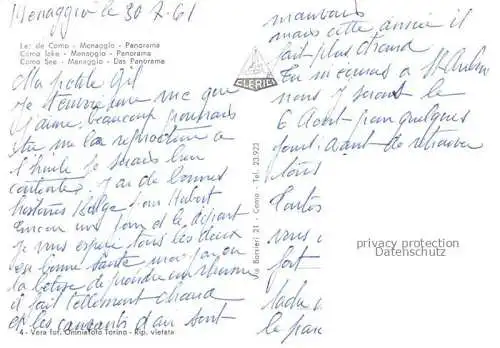 Menaggio le 30.7.61
Lac de Como - Menaggio - Panorama
Como lake - Menaggio - Panorama
Como See - Menaggio - Das Panorama
CLERICI
Ma petite Gil
Je t'envoie une vue que
j'aime beaucoup pourrais
tu me la reproduire a
l'huile je serais bien
contente. J'ai de bonnes
histoires Belge pour Hubert
Encore un jour et le départ
Je vous espère tous les deux
en bonne santé moi j'ai eu
la bêtise de prendre un rhume
il fait tellement chaud
et les courants d'air sont
4 - Vera fot. Omniafoto Torino - Rip. vietata
Via Borsieri 21 - Como - Tel. 23.923
mauvais
mais cette année il
fait plus chaud
Tu m'écriras a St
nous y serons le
6 Août pour quelques
jours avant de retrouver
tous
Toutes
vous
fort
le par
privacy protection
Datenschutz